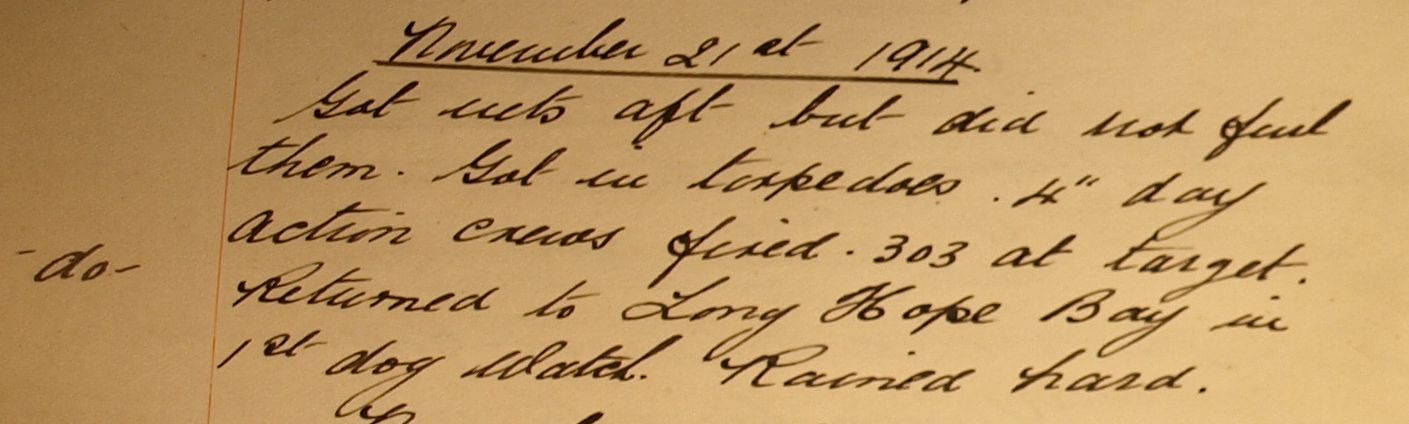 November 21st 1914.
Got nets aft but did not furl
them. Got in torpedoes. 4" day
action crews fired .303 at target.
-do-
Returned to Long Hope Bay in
1st dog watch. Rained hard.